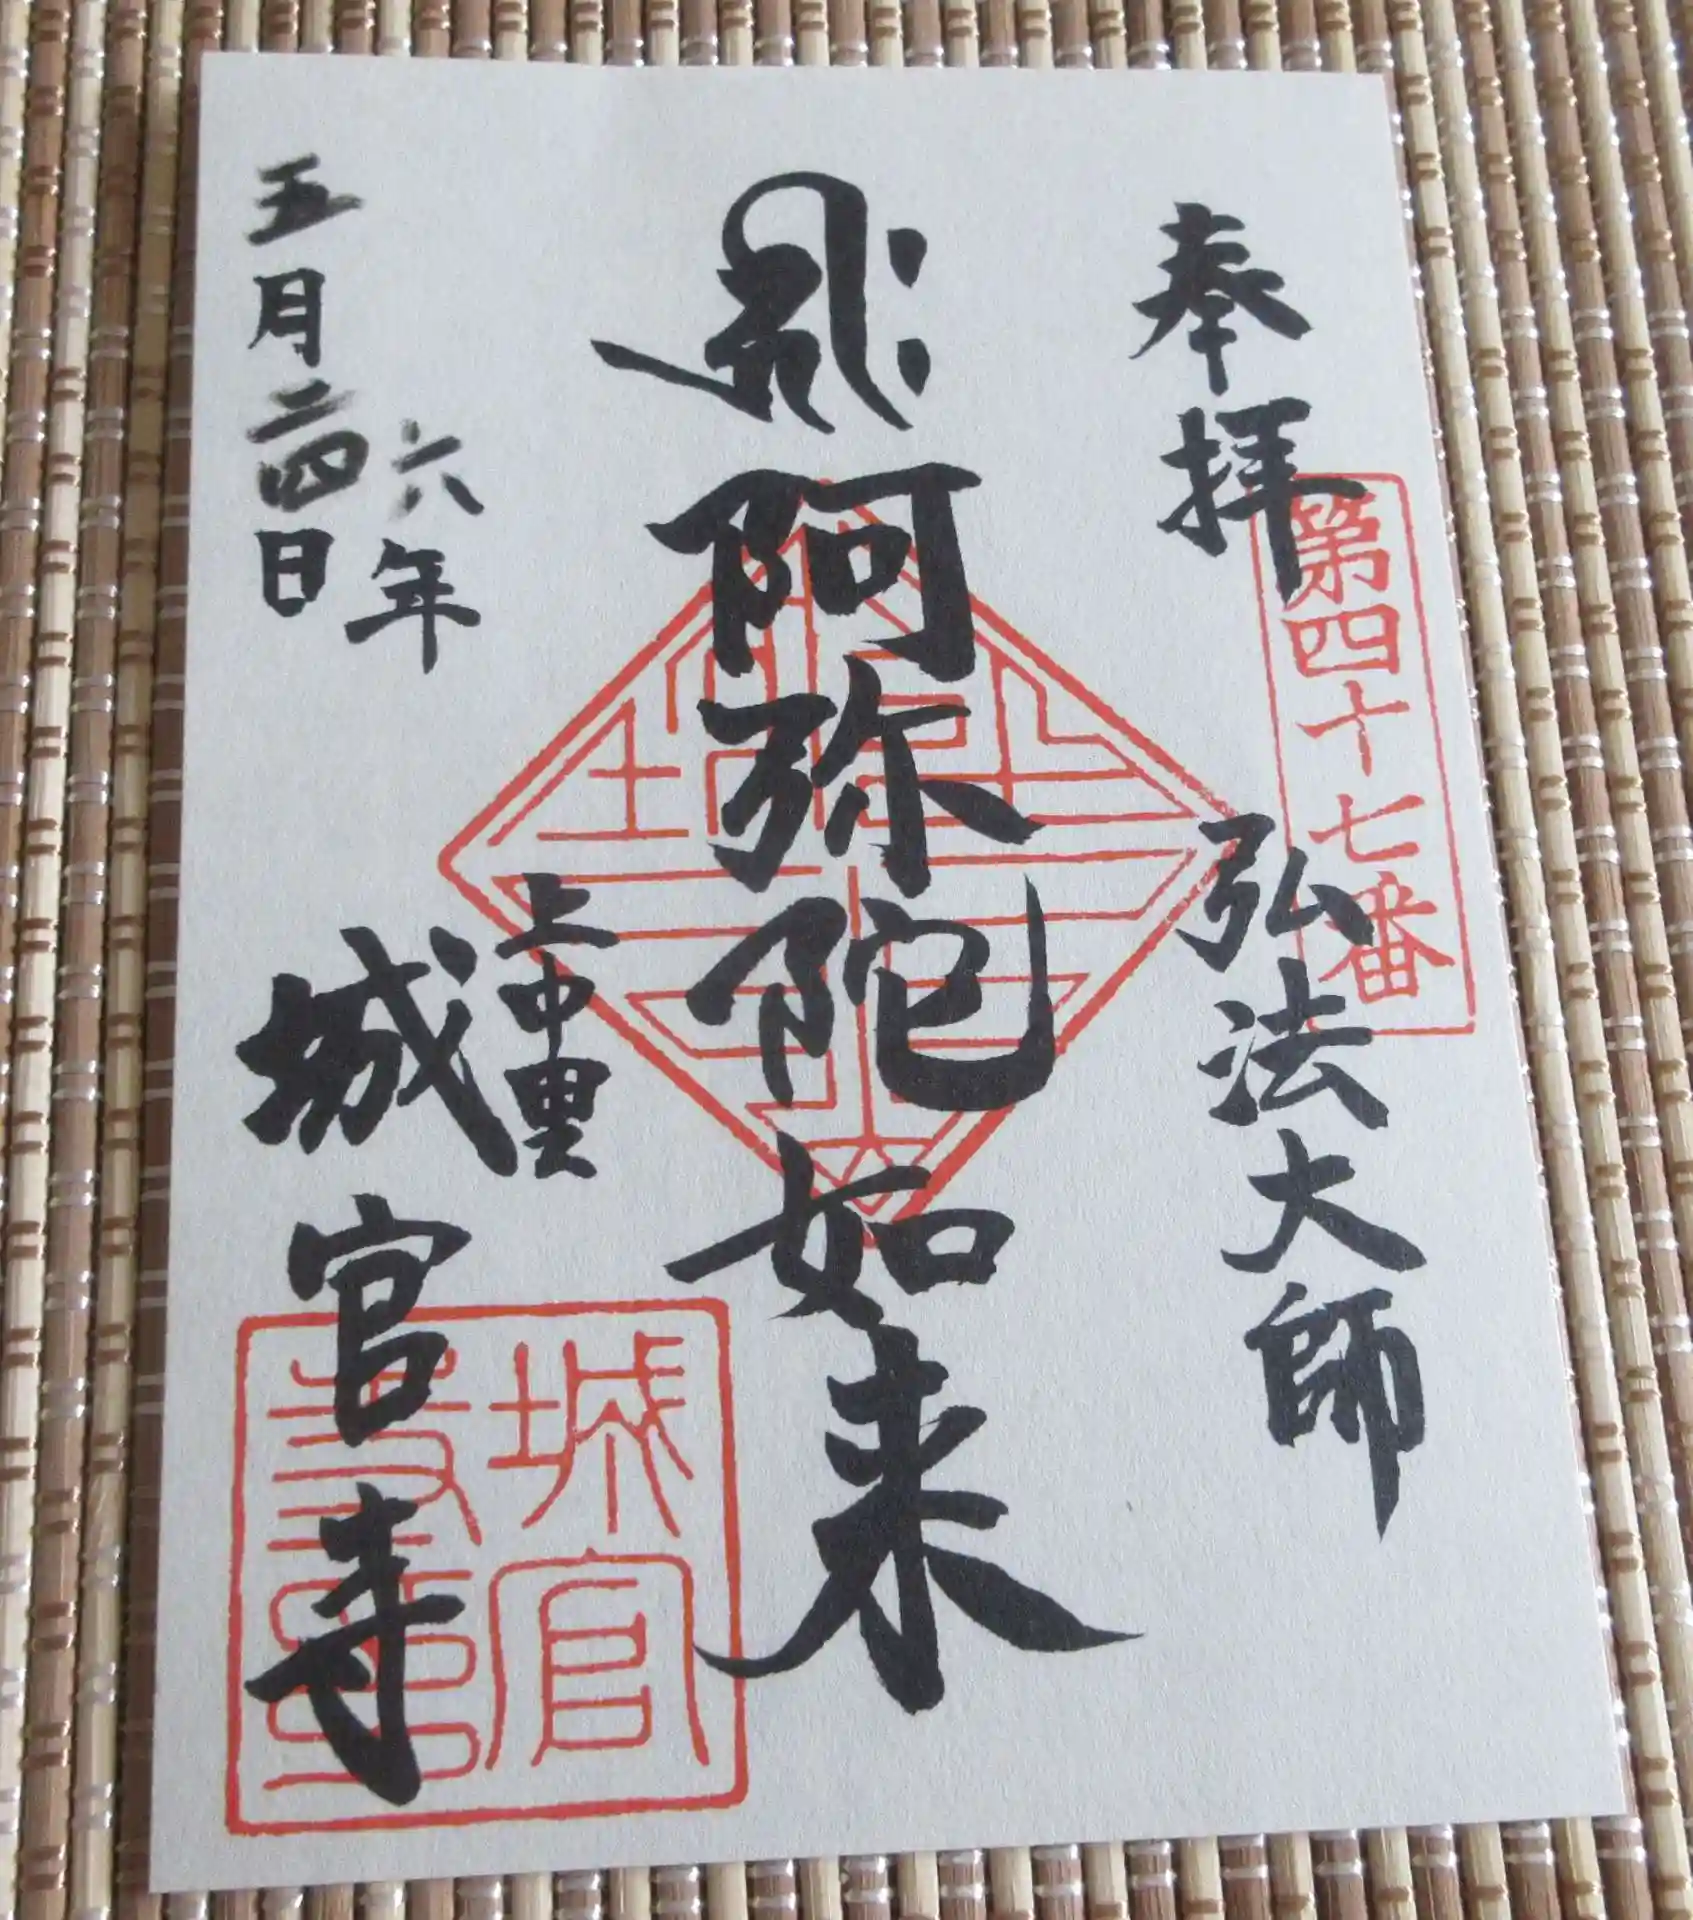 奉拝
第四十七番
弘法大師
阿弥陀如来
上中里
城官寺
城官寺
六年
五月二四日